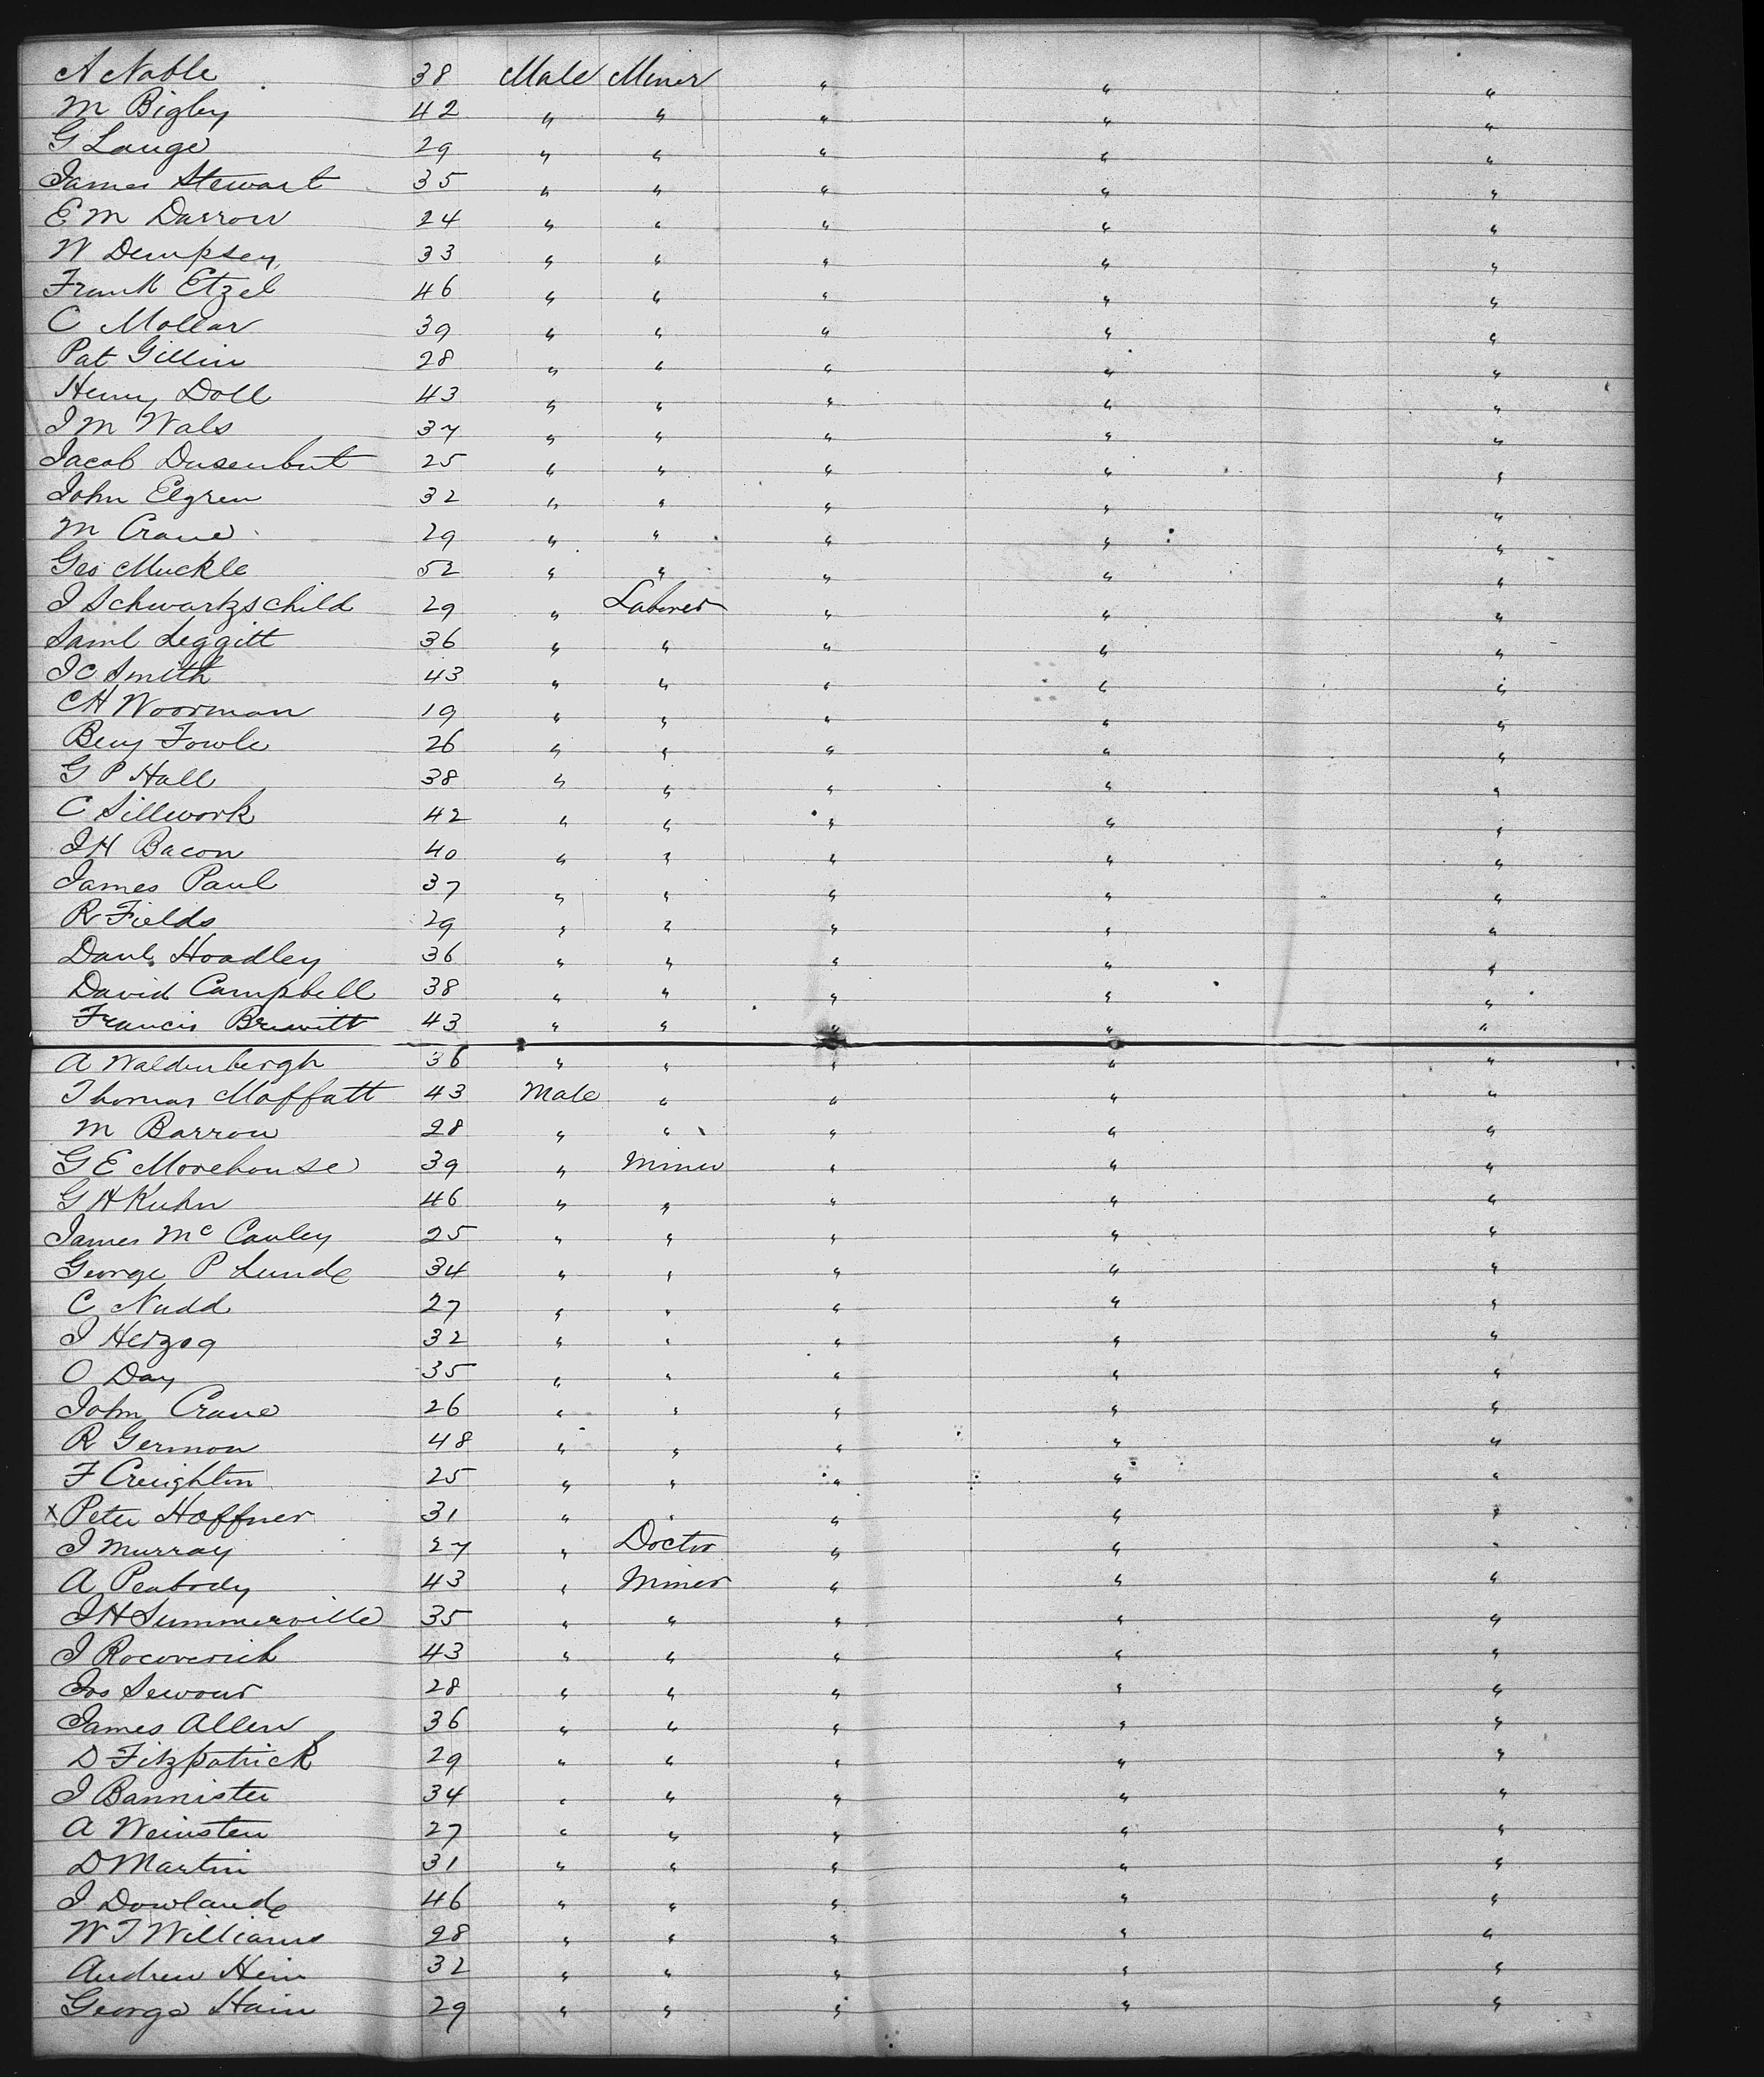 A Noble 38 Male Miner " " "
M Bigby 42 " " " " "
G Lange 29 " " " " "
James Stewart 35 " " " " "
E M Darrow 24 " " " " "
W Dempsey 33 " " " " "
Frank Etzel 46 " " " " "
C Mollar 39 " " " " "
Pat Gillin 28 " " " " "
Henry Doll 43 " " " " "
J M Wals 37 " " " " "
Jacob Dusenbut 25 " " " " "
John Elgren 32 " " " " "
M Crane 29 " " " " "
Geo Muckle 52 " " " " "
J Schwartzschild 29 " Laborer " " "
Saml Leggitt 36 " " " " "
J C Smith 43 " " " " "
C H Woorman 19 " " " " "
Benj Fowle 26 " " " " "
G P Hall 38 " " " " "
C Sillwork 42 " " " " "
J H Bacon 40 " " " " "
James Paul 37 " " " " "
R Fields 29 " " " " "
Danl. Hoadley 36 " " " " "
David Campbell 38 " " " " "
Francis Brewitt 43 " " " " "
A Waldenbergh 36 " " " " "
Thomas Moffatt 43 Male " " " "
M Barrow 28 " " " " "
G E Morehouse 39 " Miner " " "
G H Kuhn 46 " " " " "
James Mc Cauley 25 " " " " "
George P Lunde 34 " " " " "
C Nudd 27 " " " " "
J Herzog 32 " " " " "
O Day 35 " " " " "
John Crane 26 " " " " "
R Germon 48 " " " " "
F Creighton 25 " " " " "
x Peter Hoffner 31 " " " " "
J Murray 27 " Doctor " " "
A Peabody 43 " Miner " " "
J H Summerville 35 " " " " "
J Rocoverich 43 " " " " "
Jos Sewour 28 " " " " "
James Allen 36 " " " " "
D Fitzpatrick 29 " " " " "
J Bannister 34 " " " " "
A Weinsten 27 " " " " "
D Martin 31 " " " " "
J Dowlande 46 " " " " "
W T Williams 28 " " " " "
Andrew Hein 32 " " " " "
George Hain 29 " " " " "